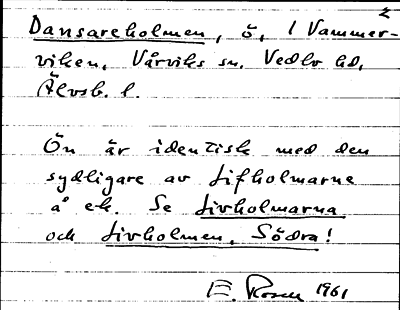 Dansareholmen, ö, I Vammer-
viken, Vårviks sn. Vedbo hd,
Älvsb. l.
Ön är identisk med den
sydligare av Lifholmarna
å ek. Se Livholmarna
och Livholmen, Södra!
E. Rosen 1961